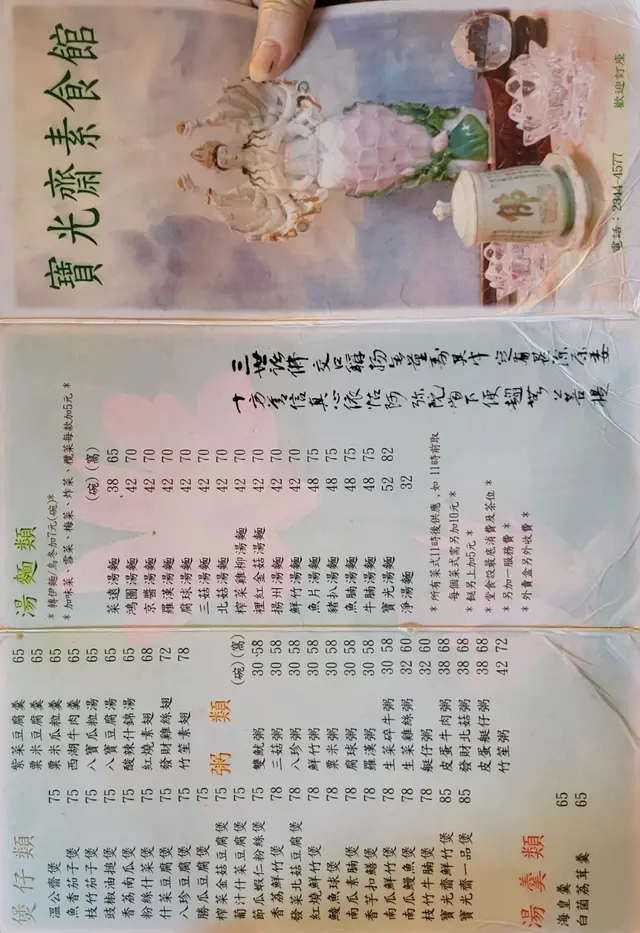 煲仔類
溫公齋煲 75
魚香茄子煲 75
枝竹茄子煲 75
豉椒油搥煲 75
香荔南瓜煲 75
粉絲什菜煲 75
什菜豆腐煲 75
八珍豆腐煲 75
勝瓜豆腐煲 75
榨菜金菇豆腐煲 75
葡汁什菜豆腐煲 75
節瓜蝦仁粉絲煲 75
香荔鮮竹煲 78
發菜北菇豆腐煲 78
紅燒鮮竹煲 78
鯪魚球煲 78
南瓜素腩煲 78
香芋扣鱔煲 78
南瓜鮮竹煲 78
南瓜鰻魚煲 78
枝竹牛腩煲 78
寶光齋鮮竹煲 85
寶光齋一品煲 85
湯羹類
海皇羹 65
白菌荔茸羹 65
紫菜豆腐羹 65
粟米豆腐羹 65
粟米瓜粒羹 65
西湖牛肉羹 65
八寶瓜粒湯 65
八寶豆腐湯 65
酸辣什錦湯 65
紅燒素翅 68
發財雞絲翅 72
竹笙素翅 78
粥類
(碗)(窩)
雙魷粥 30 58
三菇粥 30 58
八珍粥 30 58
鮮竹粥 30 58
粟米粥 30 58
腐球粥 30 58
羅漢粥 30 58
生菜碎牛粥 30 58
生菜雞絲粥 32 60
艇仔粥 32 60
皮蛋牛肉粥 38 68
發財北菇粥 38 68
皮蛋艇仔粥 38 68
竹笙粥 42 72
湯麵類
*轉伊麵/烏冬加7元(碗)*
*加味菜、雪菜、梅菜、炸菜、欖菜每款加5元*
(碗)(窩)
菜遠湯麵 38 65
鴻圖湯麵 42 70
京醬湯麵 42 70
羅漢湯麵 42 70
腐球湯麵 42 70
三菇湯麵 42 70
北菇湯麵 42 70
榨菜雞柳湯麵 42 70
裡紅金菇湯麵 42 70
揚州湯麵 42 70
鮮竹湯麵 42 70
魚片湯麵 48 75
豬扒湯麵 48 75
魚腩湯麵 48 75
牛腩湯麵 48 75
寶光湯麵 52 82
淨湯麵 32
*所有菜式11時後供應,如11時前取
每個菜式需另加10元*
*餸另上加5元*
*堂食設最底消費及茶位*
*另加一服務費*
*外賣盒另外收費*
寶光齋素食館
佛
電話:2344-4577 歡迎訂座